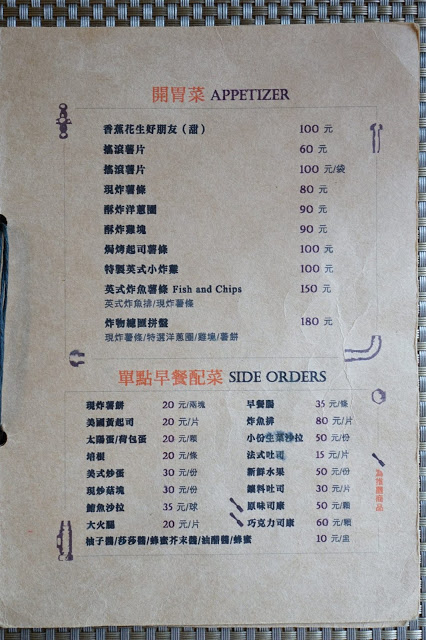 開胃菜 APPETIZER
香蕉花生好朋友（甜） 100 元
搖滾薯片 60 元
搖滾薯片 100 元/袋
現炸薯條 80 元
酥炸洋蔥圈 90 元
酥炸雞塊 90 元
焗烤起司薯條 100 元
特製英式小炸雞 100 元
英式炸魚薯條 Fish and Chips 150 元
英式炸魚排/現炸薯條
炸物總匯拼盤 180 元
現炸薯條/特選洋蔥圈/雞塊/薯餅
單點早餐配菜 SIDE ORDERS
現炸薯餅 20 元/兩塊
美國黃起司 20 元/片
太陽蛋/荷包蛋 20 元/顆
培根 20 元/條
美式炒蛋 30 元/份
現炒菇塊 30 元/份
鮪魚沙拉 35 元/球
大火腿 20 元/片
早餐腸 35 元/條
炸魚排 80 元/片
小份生菜沙拉 50 元/份
法式吐司 15 元/片
新鮮水果 50 元/份
餡料吐司 30 元/片
原味司康 50 元/顆
巧克力司康 60 元/顆
柚子醬/莎莎醬/蜂蜜芥末醬/油醋醬/蜂蜜 10 元/盅
為推薦商品